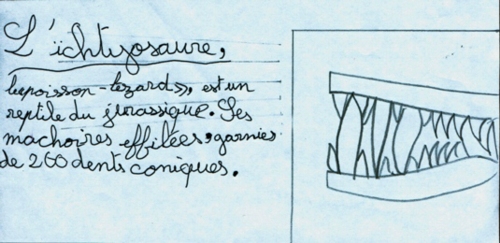 L'ichtyosaure,
le poisson-lezard», est un
reptile du jurassique. Ses
machoires effilées, garnies
de 260 dents coniques.